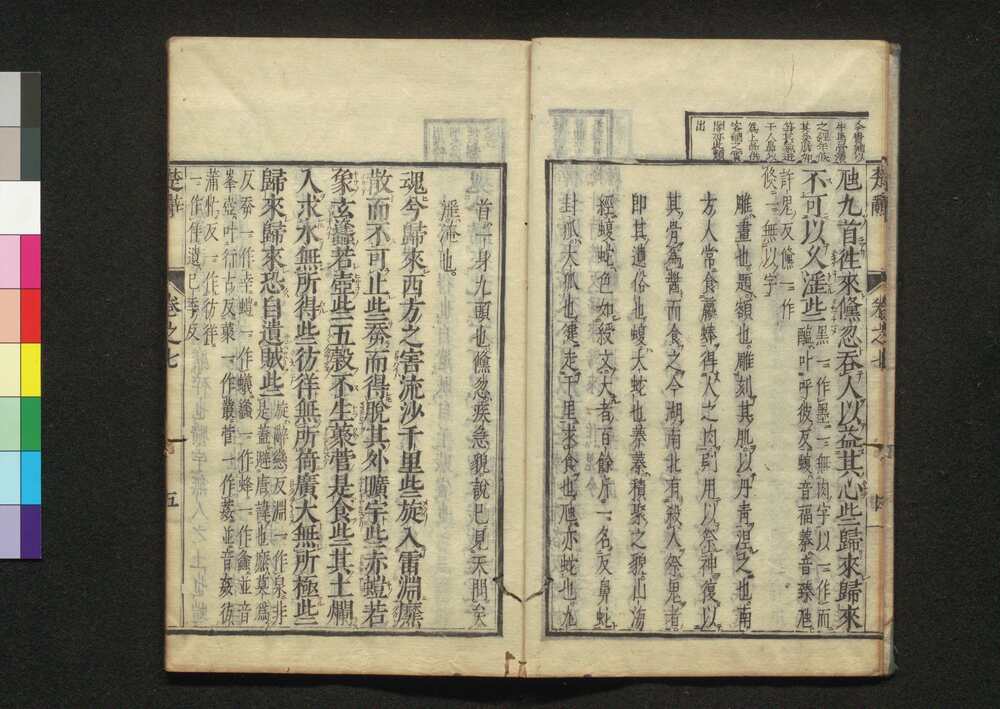 楚辭 卷之七
虺九首往來儵忽吞人以益其心些歸來歸來
不可以久淫些
黑一作墨一無肉字以一作而
醢叶呼彼反蝮音福蓁音臻虺
許鬼反儵一作
倏一無以字
雕畫也題額也雕刻其肌以丹青涅之也南
方人常食蠃蜯得人之肉則用以祭神復以
其骨爲醬而食之今湖南北有殺人祭鬼者
即其遺俗也蝮大蛇也蓁蓁積聚之貌山海
經蝮蛇色如綬文大者百餘斤一名反鼻虵
封狐大狐也健走千里求食也虺亦蛇也九
首一身九頭也儵忽疾急貌說已見天問矣
淫淹也
魂兮歸來西方之害流沙千里些旋入雷淵爢
散而不可止些𠦂而得脫其外曠宇些赤螘若
象玄蠭若壺些五穀不生藂菅是食些其土爛
人求水無所得些彷徉無所倚廣大無所極些
歸來歸來恐自遺賊些
旋辭戀反淵一作泉非
是蓋避唐諱也爢莫爲
反𠦂一作幸螘一作蟻蠭一作蜂一作螽並音
峯壺叶行古反藂一作叢菅一作葌並音姦彷
蒲忙反一作彷徨
一作佯遺已季反
楚辭 卷之七 五